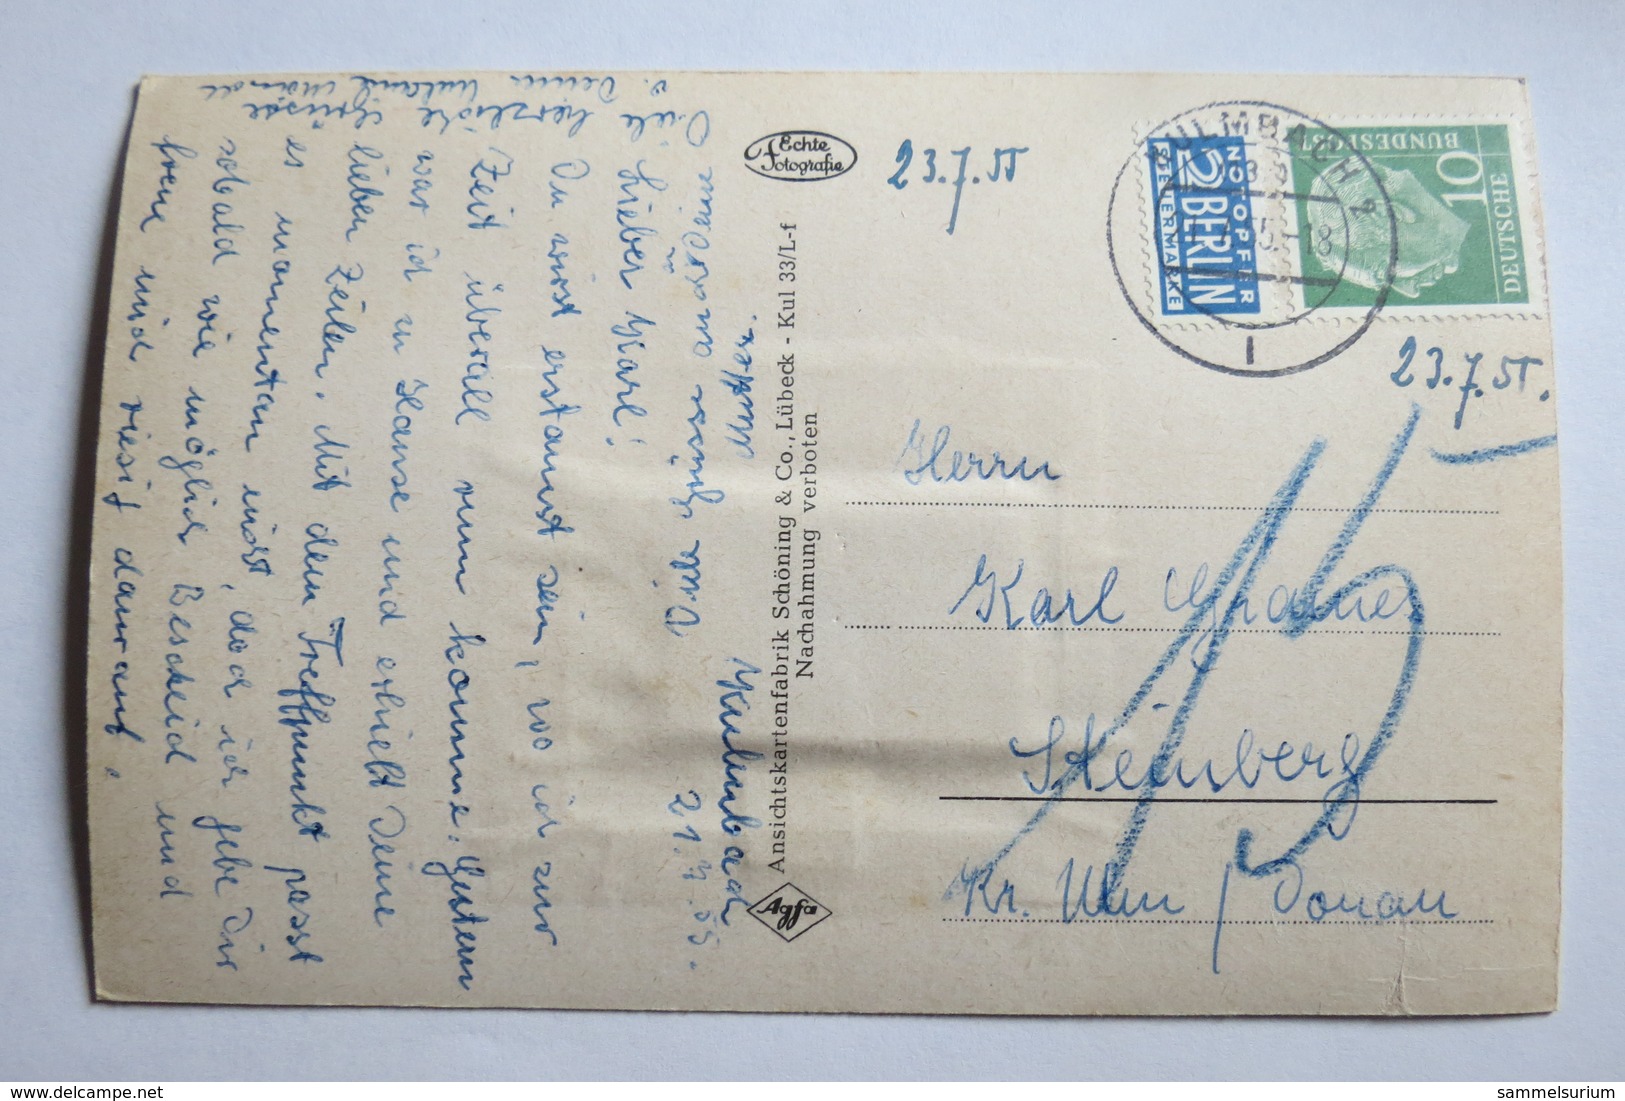 Kulmbach
21.7.55.
Lieber Karl!
Du wirst erstaunt sein, wo ich zur
Zeit überall rum komme. Gestern
war ich zu Hause und erhielt Deine
lieben Zeilen. Mit dem Treffpunkt passt
es momentan nicht, doch ich gebe Dir
sobald wie möglich Bescheid und
freue mich riesig darauf.
Viele herzliche Grüsse
v. Deiner
Viele Grüsse
Echte
Fotografie
Ansichtskartenfabrik Schöning & Co., Lübeck - Kul 33/L-f
Nachahmung verboten
Agfa
23.7.55
23.7.55.
KULMBACH 2
55.-18
NOTOPFER
2 BERLIN
STEUERMARKE
DEUTSCHE
10
BUNDESPOST
15
Herrn
Karl
Steinberg
Kr. Ulm / Donau
delcampe.net
sammelsurium